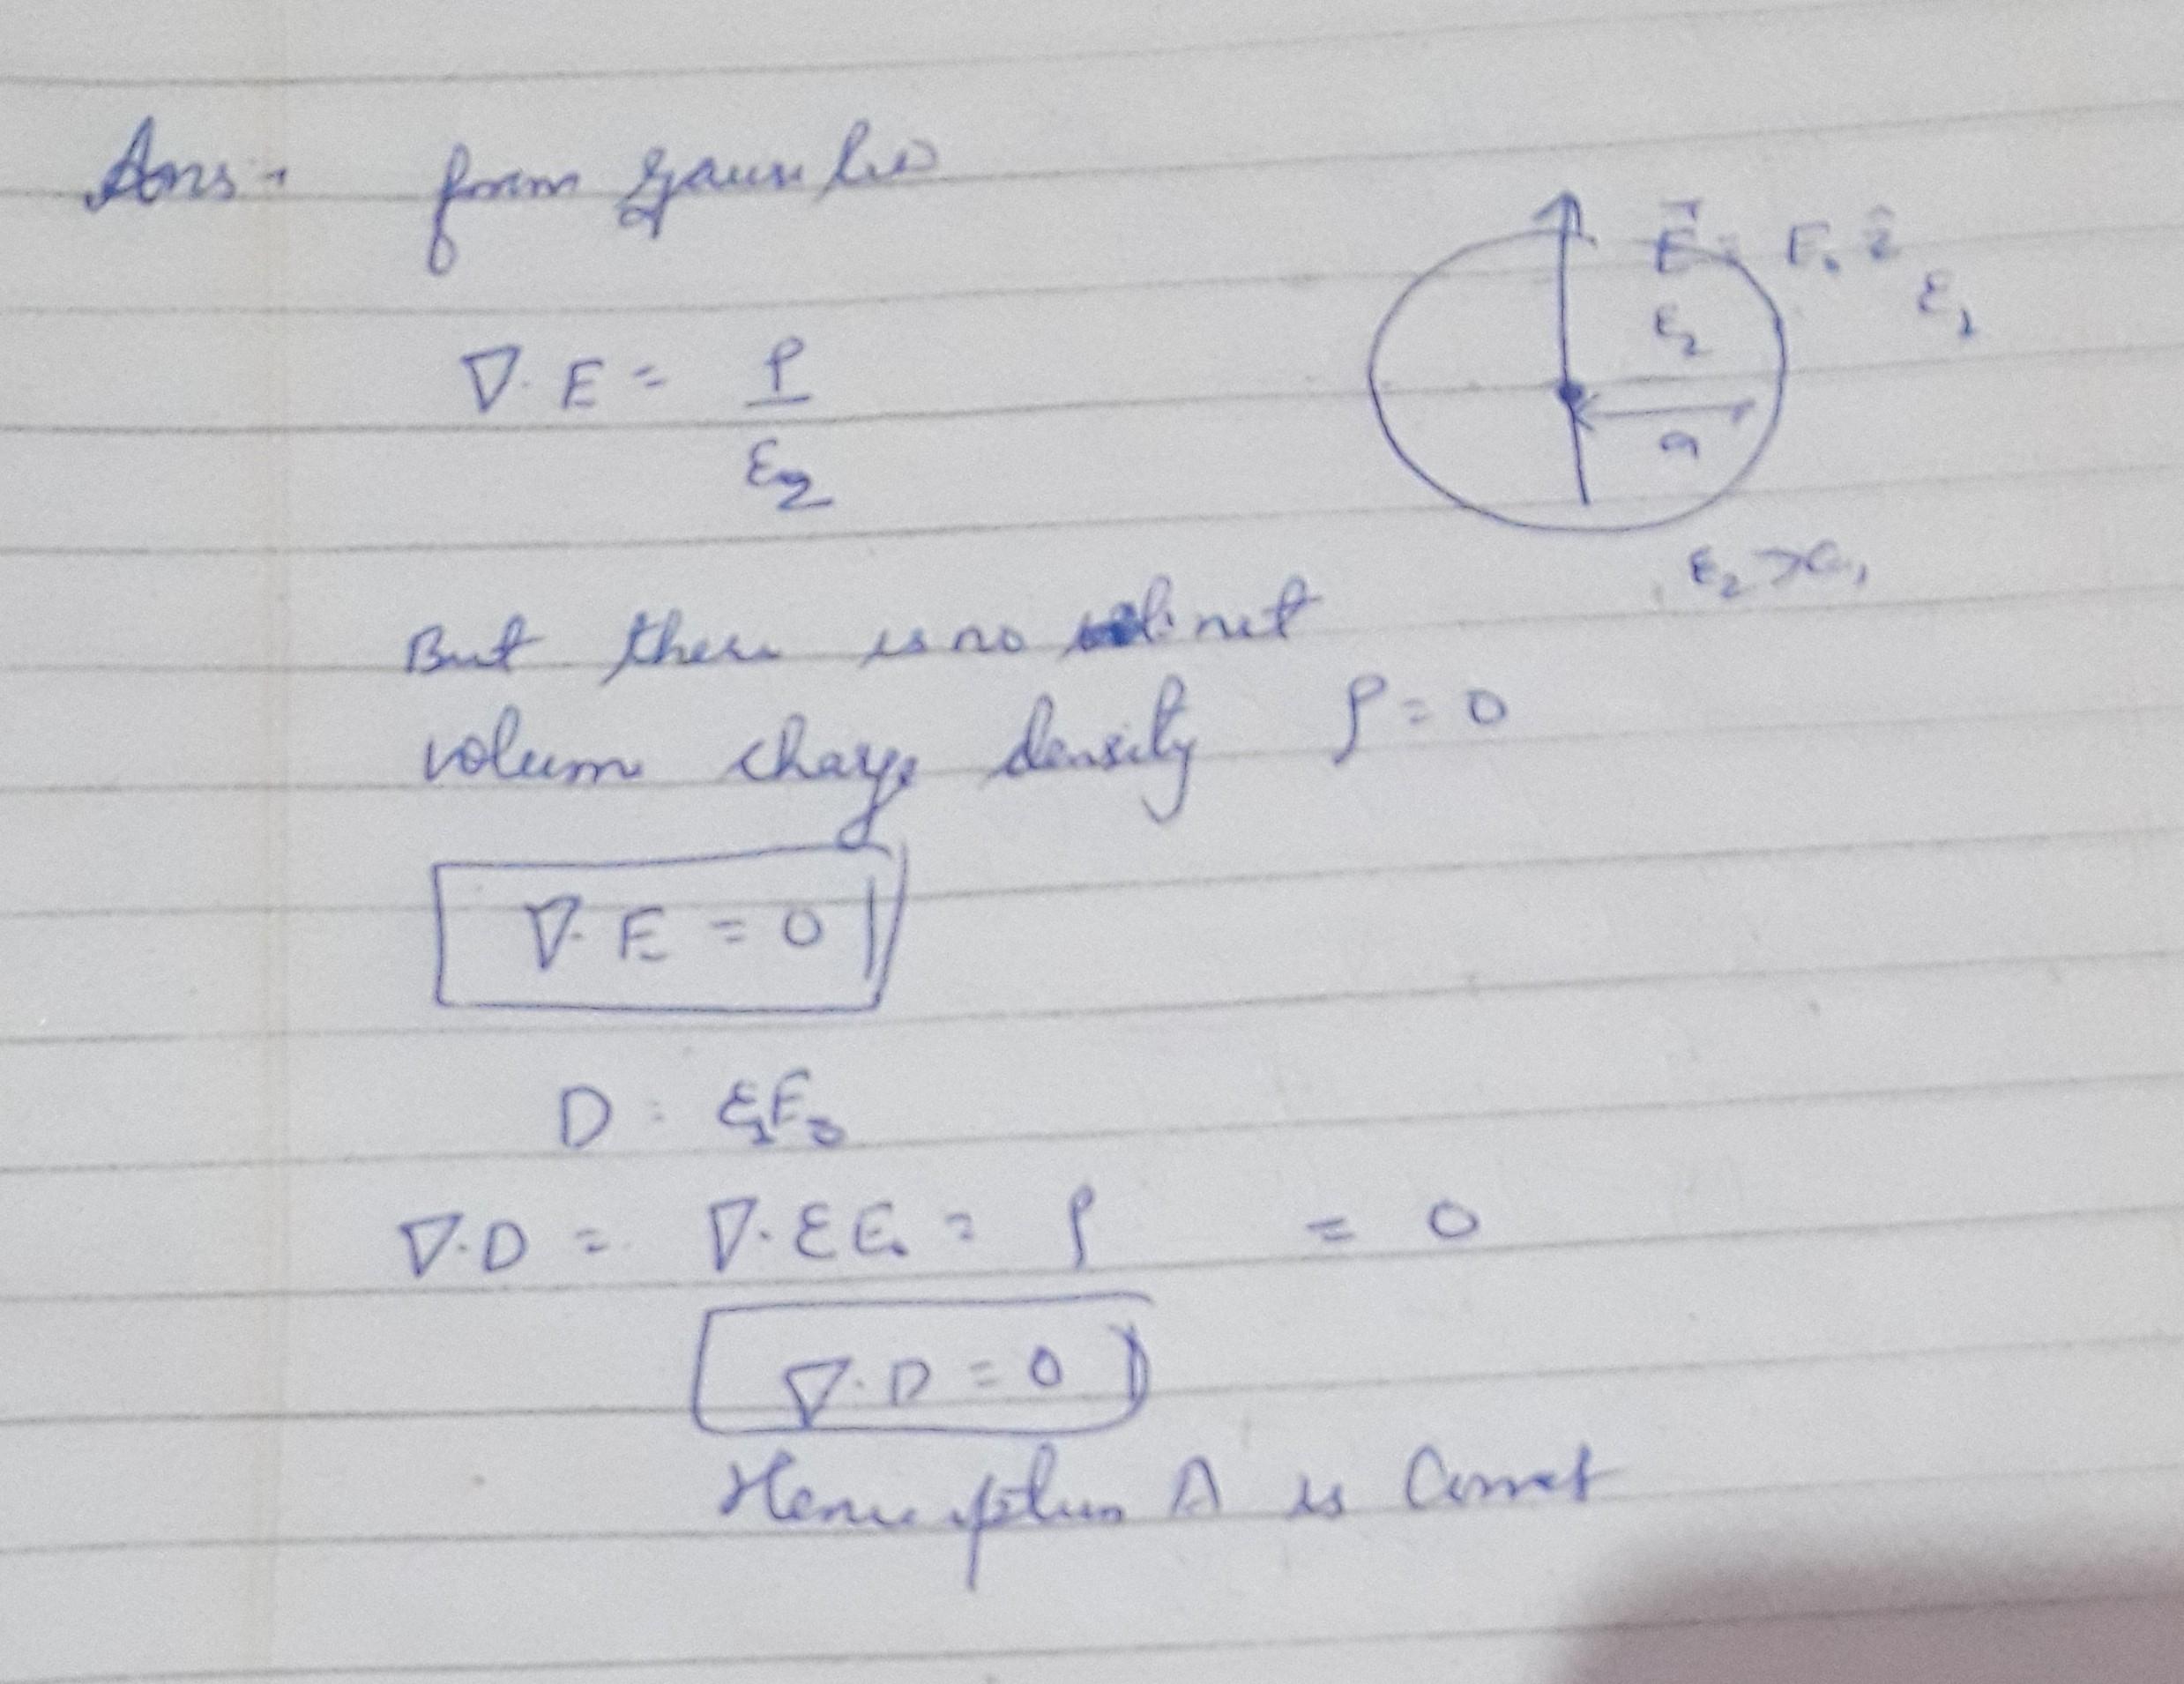 Ans:- from gauss law
E⃗ = E₀ ẑ
ε₁
∇. E = ρ / ε₂
ε₂
a
ε₂ > ε₁
But there is no net
volum charge density ρ = 0
∇. E = 0
D = ε₂E₀
∇.D = ∇.εE₀ = ρ = 0
∇.D = 0
Hence option A is Correct